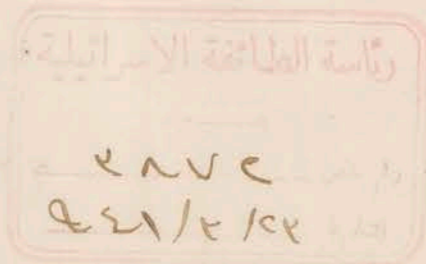 رئاسة الطائفة الاسرائيلية
٣٨٧٢
٩٤١/٣/٢٣